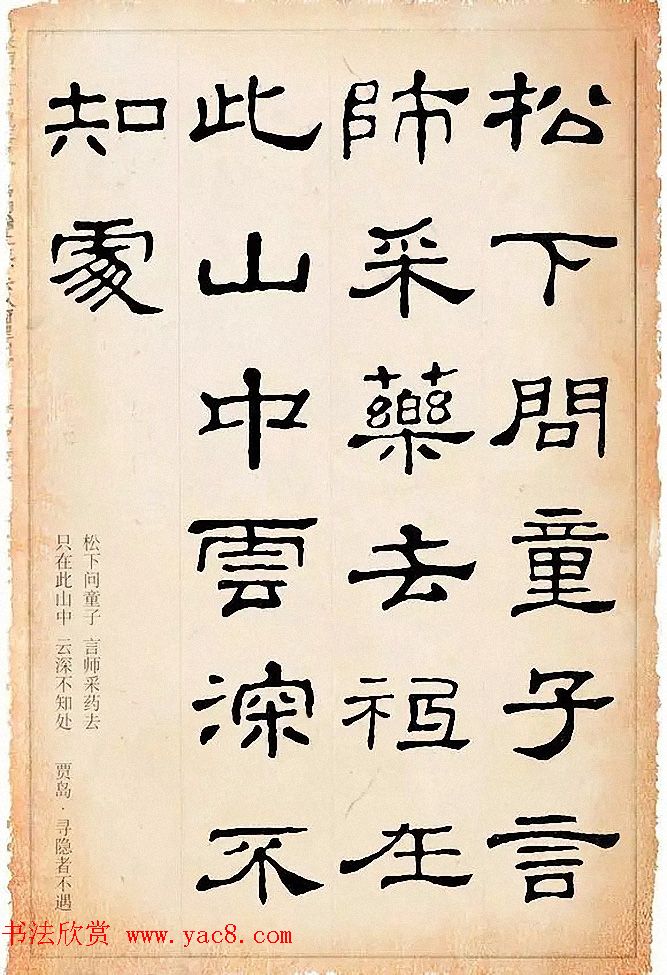 松下問童子言
師采藥去祇在
此山中雲深不
知處
松下问童子 言师采药去
只在此山中 云深不知处 贾岛·寻隐者不遇
书法欣赏 www.yac8.com